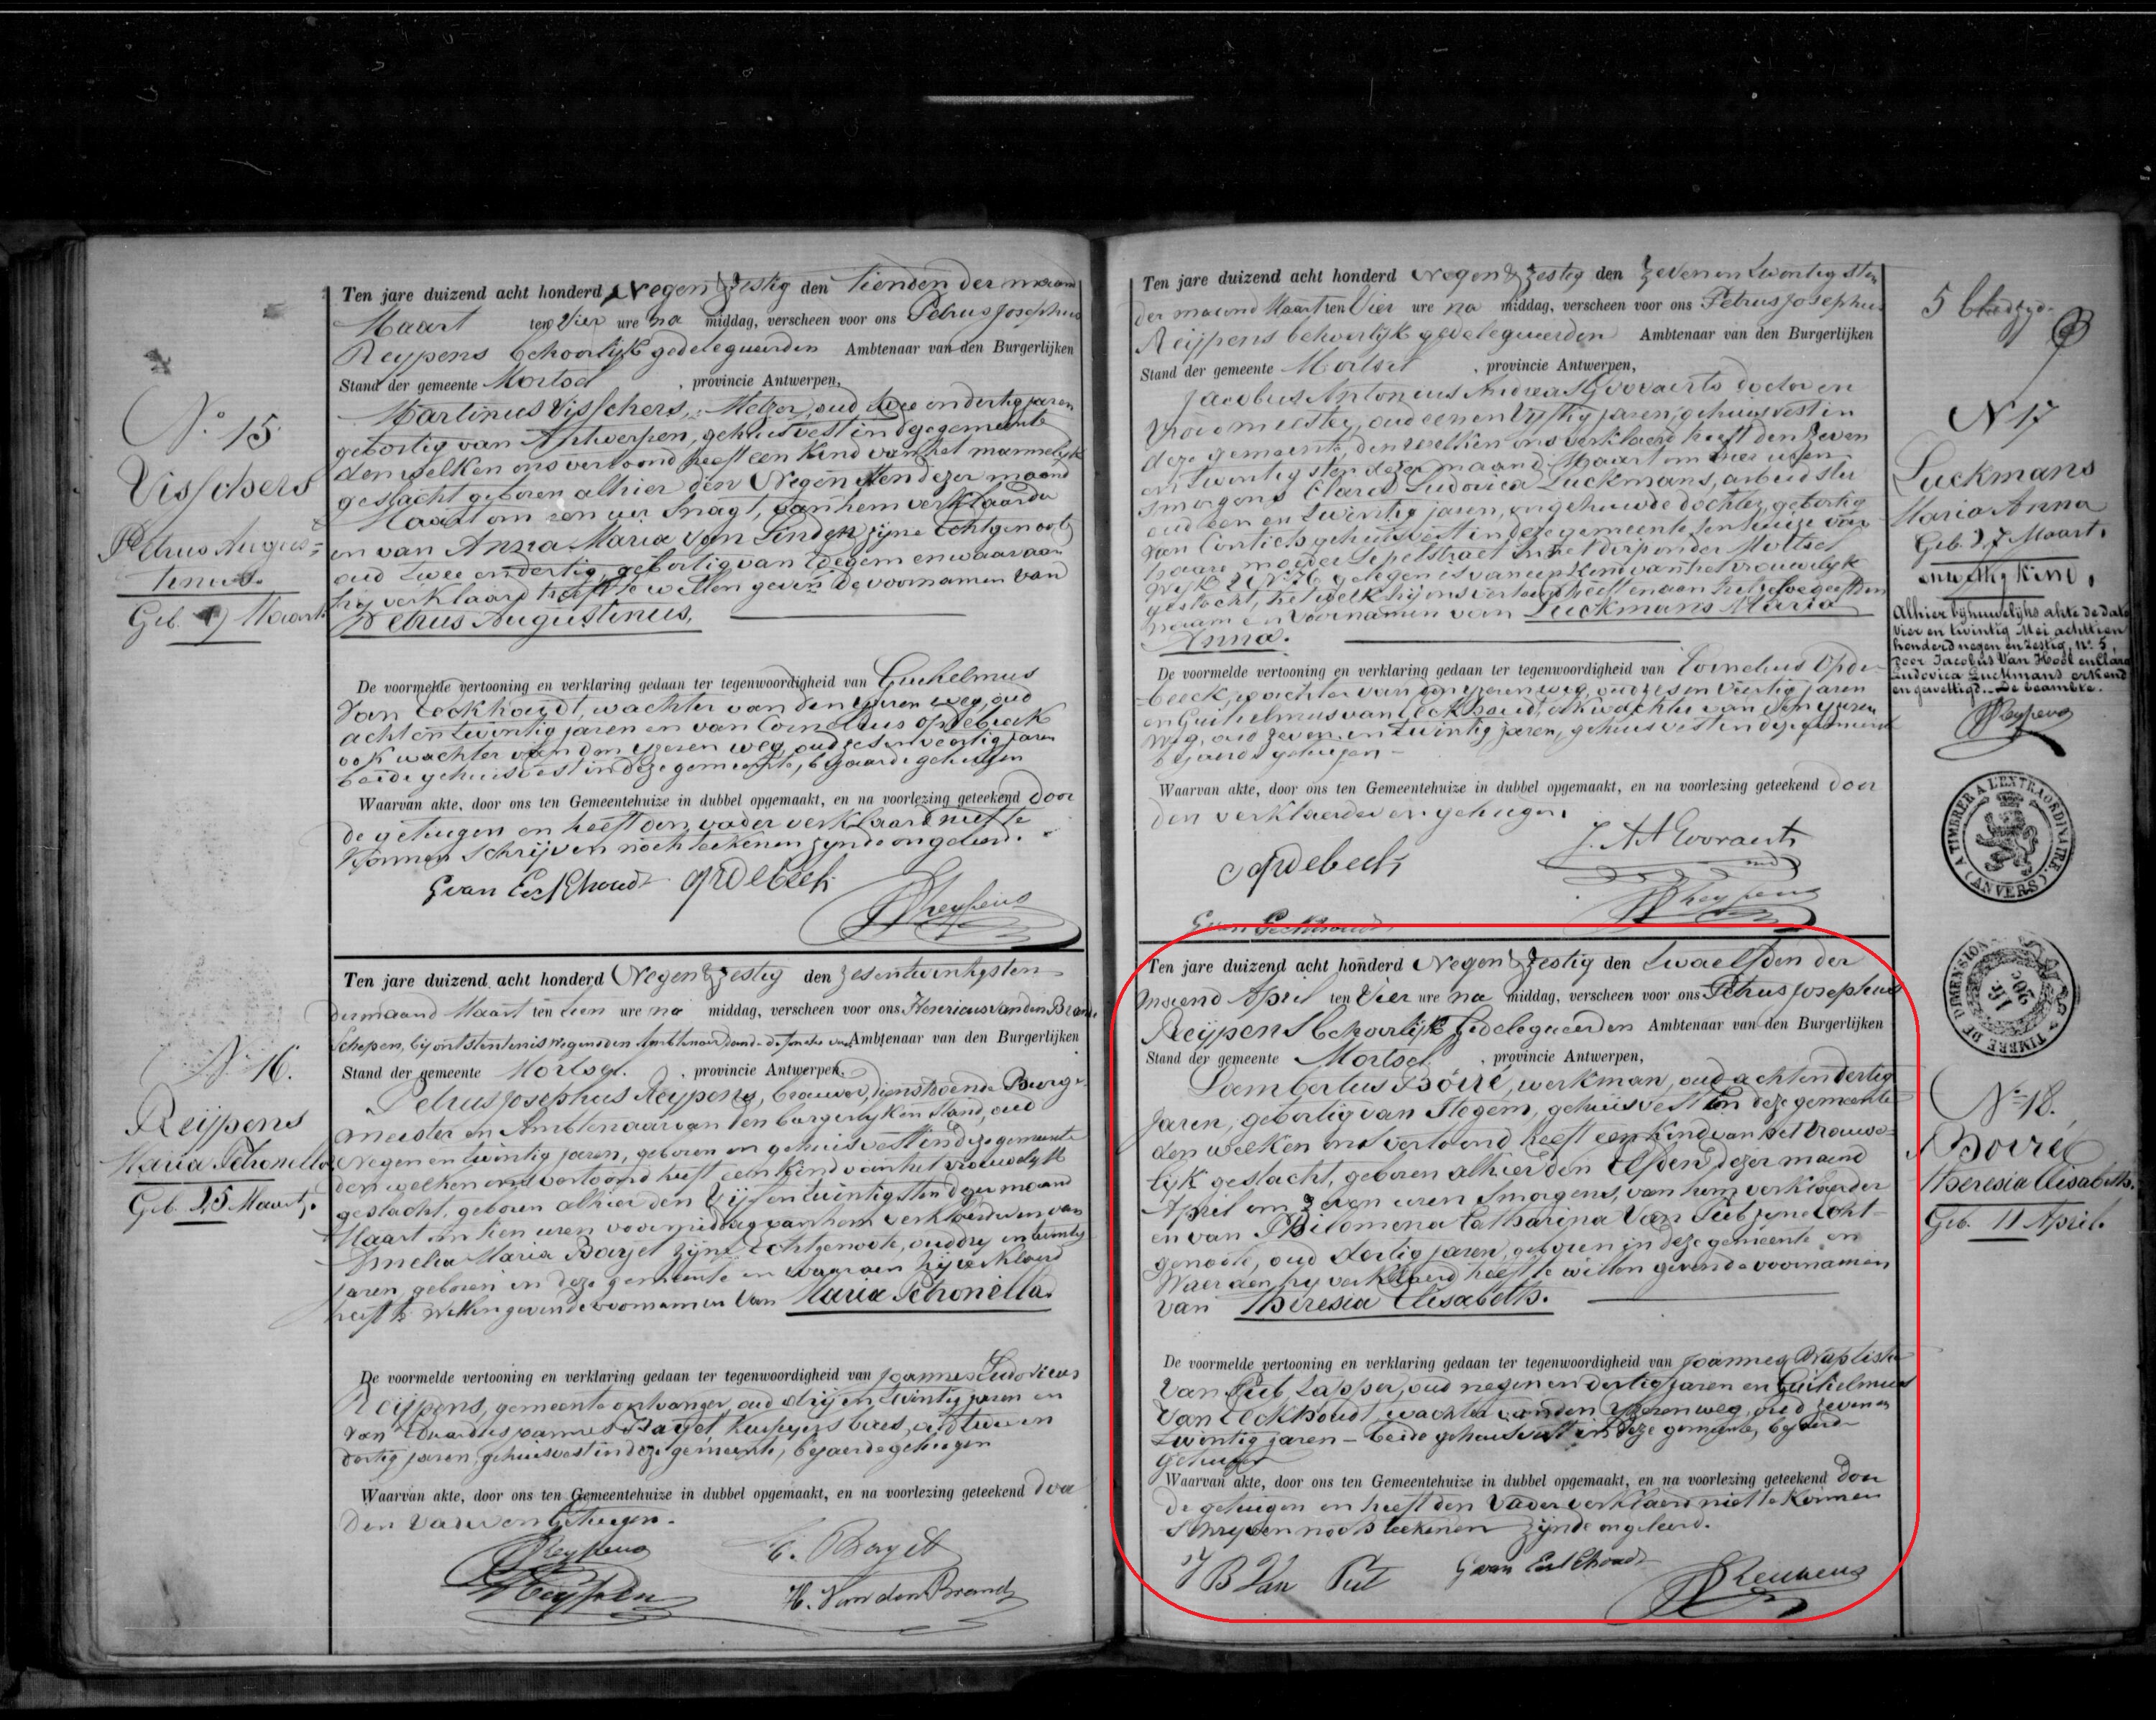 N° 15
Visschers
Petrus Augus=
tinus.
Geb. 9 Maart
Ten jare duizend acht honderd Negen & Zestig den tienden der maand
Maart ten Vier ure na middag, verscheen voor ons Petrus Josephus
Reypens behoorlijk gedelegueerden Ambtenaar van den Burgerlijken
Stand der gemeente Mortsel , provincie Antwerpen,
Martinus Visschers, Metzer, oud twee en dertig jaren
gebortig van Antwerpen, gehuisvest in deze gemeente
denwelken ons vertoond heeft een kind van het mannelyk
geslacht geboren alhier den Negensten dezer maand
Maart om een uer snagt, van hem verklaarder
en van Anna Maria Van Linden zijne Echtgenoote
oud twee en dertig, gebortig van Edegem en waaraan
hij verklaard heeft te willen geven de voornamen van
Petrus Augustinus,
De voormelde vertooning en verklaring gedaan ter tegenwoordigheid van Guilielmus
Van Eeckhoudt, wachter van den yzeren weg, oud
acht en twintig jaren en van Cornelius Opdebeeck
ook wachter van den yzeren weg, oud zes en veertig jaren
beide gehuisvest in deze gemeente, bejaarde getuigen
Waarvan akte, door ons ten Gemeentehuize in dubbel opgemaakt, en na voorlezing geteekend door
de getuigen en heeft den vader verklaard niet te
konnen schrijven noch teekenen zynde ongeleerd.
G van Eeckhoudt Opdebeeck
PJ Reypens
N° 16.
Reijpens
Maria Petronella
Geb. 25 Maart.
Ten jare duizend acht honderd Negen & Zestig den zesentwintigsten
der maand Maart ten een ure na middag, verscheen voor ons Henricus Van den Brande
Schepen, bij ontstentenis wegens den Ambtenaar Ambtenaar van den Burgerlijken
Stand der gemeente Mortsel , provincie Antwerpen,
Petrus Josephus Reypens, brouwer, dienstdoende Burge-
meester en Ambtenaar van den burgerlyken stand, oud
Negen en twintig jaren, geboren en gehuisvest in deze gemeente
den welken ons vertoond heeft een kind van het vrouwelyk
geslacht, geboren alhier den Vijf en twintigsten dezer maand
Maart om tien uren voormiddag van hem verklaarder en van
Amelia Maria Bayet zijne Echtgenoote, oud dry en twintig
jaren, geboren in deze gemeente en waaraen hij verklaard
heeft te willen geven de voornamen van Maria Petronella.
De voormelde vertooning en verklaring gedaan ter tegenwoordigheid van Joannes Ludovicus
Reijpens, gemeente ontvanger, oud drij en twintig jaren en
van Eduardus Joannes Bayet kuipers baes, oud twee en
dertig jaren, gehuisvest in deze gemeente, bejaerde getuigen
Waarvan akte, door ons ten Gemeentehuize in dubbel opgemaakt, en na voorlezing geteekend door
den Vader en Getuigen.
Reypens E. Bayet
Reypens H. Van den Brande
Ten jare duizend acht honderd Negen & Zestig den zevenentwintigsten
der maand Maart ten Vier ure na middag, verscheen voor ons Petrus Josephus
Reijpens behoorlijk gedelegueerden Ambtenaar van den Burgerlijken
Stand der gemeente Mortsel , provincie Antwerpen,
Jacobus Antonius Andreas Govaerts doctor en
Vroedmeester, oud een en vijftig jaren, gehuisvest in
deze gemeente, denwelken ons verklaerd heeft den zeven
en twintigsten dezer maand Maart om uren
smorgens Clara Ludovica Luckmans, arbeidster
oud een en twintig jaren, ongehuwde dochter gebortig
van Contich gehuisvest in deze gemeente ten huize van
haare moeder Lepelstraet in het dorp onder Mortsel
Wijk 2 N° 76 gelegen is van een kind van het vrouwelyk
geslacht, hetwelk hij ons vertoond heeft en aen het
naam en voornamen van Luckmans Maria
Anna.
De voormelde vertooning en verklaring gedaan ter tegenwoordigheid van Cornelius Opde-
beeck, wachter van den yzeren weg, oud zes en veertig jaren
en Guilielmus van Eeckhoudt, ook wachter van den yzeren
weg, oud zeven en twintig jaren, gehuisvest in deze gemeente
bejaarde getuigen
Waarvan akte, door ons ten Gemeentehuize in dubbel opgemaakt, en na voorlezing geteekend door
den verklaerder en getuigen.
Opdebeeck J. A. A. Govaerts
PJ Reypens
G van Eeckhoudt
5 bladzyd.
N 17
Luckmans
Maria Anna
Geb. 27 Maart.
onwettig kind.
Alhier by huwelijks akte de dato
vier en twintig Mei achttien
honderd negen en zestig, n° 5,
door Jacobus Van Hool en Clara
Ludovica Luckmans erkend
en gewettigd. De beambte.
Reypens
A TIMBRER A L'EXTRAORDINAIRE.
(ANVERS)
TIMBRE DE DIMENSION
Ten jare duizend acht honderd Negen & Zestig den twaelfden der
maend April ten Vier ure na middag, verscheen voor ons Petrus Josephus
Reijpens behoorlijk Gedelegueerden Ambtenaar van den Burgerlijken
Stand der gemeente Mortsel , provincie Antwerpen,
Lambertus Boiré, werkman, oud acht en dertig
jaren, gebortig van Itegem, gehuisvest in deze gemeente
den welken ons vertoond heeft een kind van het vrouwe-
lijk geslacht, geboren alhier den Elfden dezer maand
April om zeven uren smorgens, van hem verklaarder
en van Philomena Catharina Van Put zijne Echt-
genoote, oud dertig jaren, geboren in deze gemeente en
Waeraen hy verklaerd heeft te willen geven de voornamen
van Theresia Elisabeth.
De voormelde vertooning en verklaring gedaan ter tegenwoordigheid van Joannes Baptista
Van Put, Zapper, oud negen en dertig jaren en Guilielmus
Van Eeckhoudt, wachter van den Yzeren weg, oud zeven en
twintig jaren - beide gehuisvest in deze gemeente, bejaerde
getuigen
Waarvan akte, door ons ten Gemeentehuize in dubbel opgemaakt, en na voorlezing geteekend door
de getuigen en heeft den Vader verklaerd niet te konnen
schryven noch teekenen zijnde ongeleerd.
J B Van Put G van Eeckhoudt
PJ Reypens
N° 18.
Boiré
Theresia Elisabeth.
Geb. 11 April.